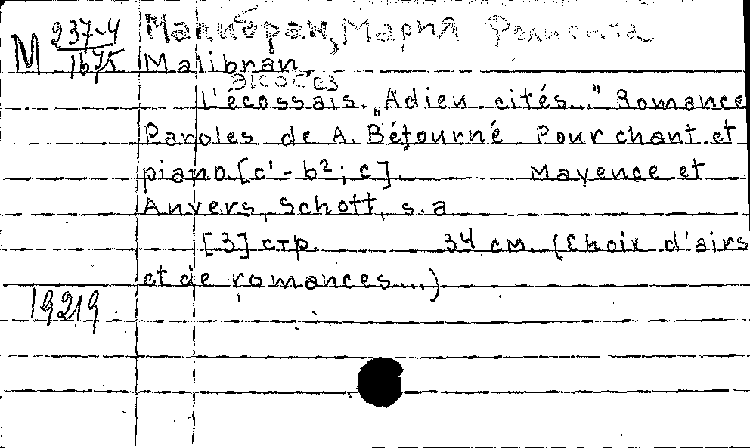 М 237-4/1675
Малибран, Мария Фелисита
Malibran
экоссез
L'écossais. „Adieu cités..." Romance
Paroles de A. Bétourné Pour chant et
piano.[c¹-b²; c]. Mayence et
Anvers, Schott, s. a
[3] стр. 34 см. (Choix d'airs
et de romances...)
19219